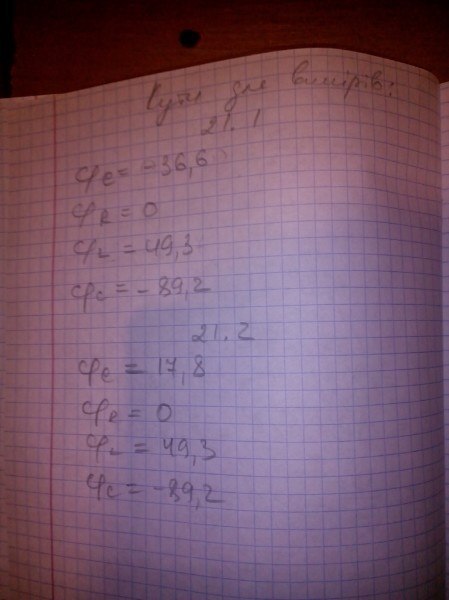 Кути для вимірів:
21.1
φe = -36,6
φR = 0
φL = 49,3
φc = -89,2
21.2
φe = 17,8
φR = 0
φL = 49,3
φc = -89,2